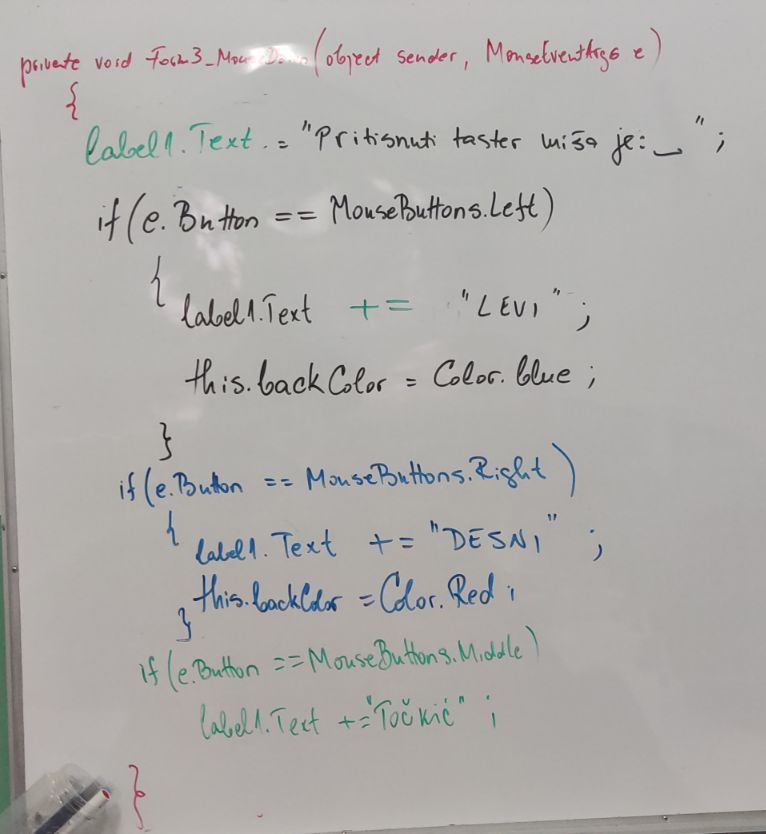 private void Form3_MouseDown(object sender, MouseEventArgs e)
{
label1.Text = "Pritisnuti taster miša je:_ ";
if(e.Button == MouseButtons.Left)
{
label1.Text += "LEVI";
this.backColor = Color.blue;
}
if(e.Button == MouseButtons.Right)
{
label1.Text += "DESNI";
this.backColor = Color.Red;
}
if(e.Button == MouseButtons.Middle)
label1.Text += "Točkić";
}